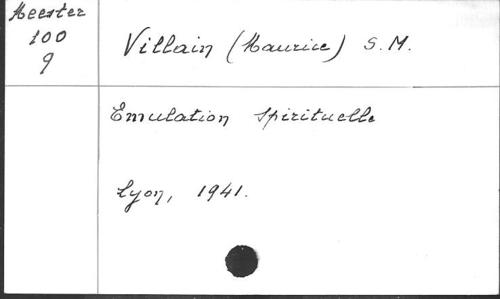 Heester
100
9
Villain (Maurice) S.M.
Emulation spirituelle
Lyon, 1941.